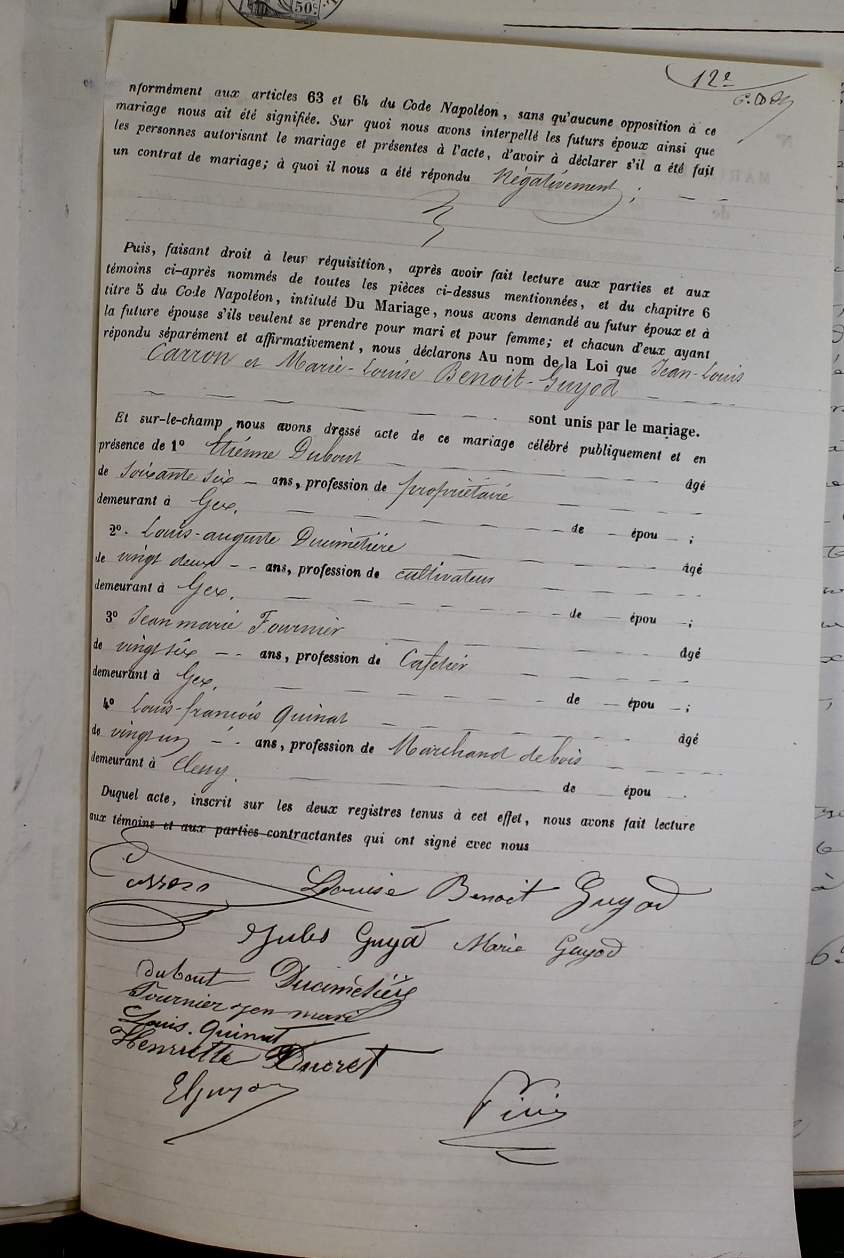 50c
12e
nformément aux articles 63 et 64 du Code Napoléon, sans qu'aucune opposition à ce
mariage nous ait été signifiée. Sur quoi nous avons interpellé les futurs époux ainsi que
les personnes autorisant le mariage et présentes à l'acte, d'avoir à déclarer s'il a été fait
un contrat de mariage; à quoi il nous a été répondu Négativement ;
Puis, faisant droit à leur réquisition, après avoir fait lecture aux parties et aux
témoins ci-après nommés de toutes les pièces ci-dessus mentionnées, et du chapitre 6
titre 5 du Code Napoléon, intitulé Du Mariage, nous avons demandé au futur époux et à
la future épouse s'ils veulent se prendre pour mari et pour femme; et chacun d'eux ayant
répondu séparément et affirmativement, nous déclarons Au nom de la Loi que Jean-Louis
Carron et Marie-Louise Benoit-Guyod
sont unis par le mariage.
Et sur-le-champ nous avons dressé acte de ce mariage célébré publiquement et en
présence de 1° Etienne Dubout âgé
de soixante six - ans, profession de propriétaire
demeurant à Gex. de - épou - ;
2°. Louis-auguste Ducimetière âgé
de vingt deux - - ans, profession de cultivateur
demeurant à Gex. de - épou - ;
3° Jean marie Fournier âgé
de vingt six - - ans, profession de Cafetier
demeurant à Gex. de - épou - ;
4° Louis-françois Quinat âgé
de vingt un - - ans, profession de Marchand de bois
demeurant à Cessy. de épou
Duquel acte, inscrit sur les deux registres tenus à cet effet, nous avons fait lecture
aux témoins et aux parties contractantes qui ont signé avec nous
Carron Louise Benoit Guyod
Jules Guyd Marie Guyod
dubout Ducimetière
Fournier jean marie
Louis. Quinat
Henriette Ducret
EGuyon